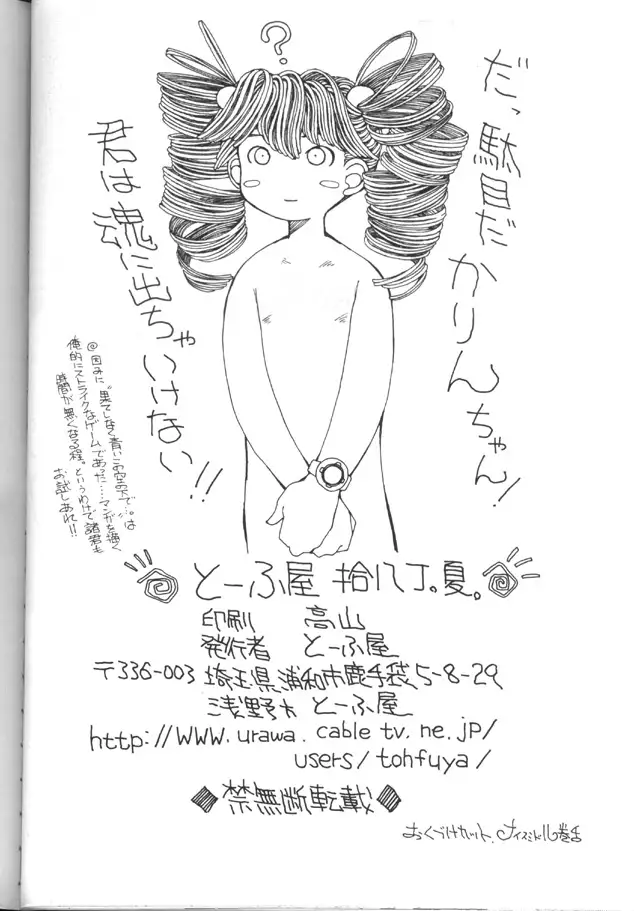 ?
だっ駄目だかりんちゃん!
君は魂に出ちゃいけない!!
@因みに"果てしなく青いこの空の下で…。は
俺的にストライクなゲームであった……マンガを描く
時間が無くなる程。というわけで諸君も
お試しあれ!!
とーふ屋 拾八丁。夏。
印刷 高山
発行者 とーふ屋
〒336-003 埼玉県浦和市鹿手袋5-8-29
浅野方 とーふ屋
http://www.urawa.cable tv.ne.jp/
users/tohfuya/
◆禁無断転載◆
おくづけカット、ナイスミドル